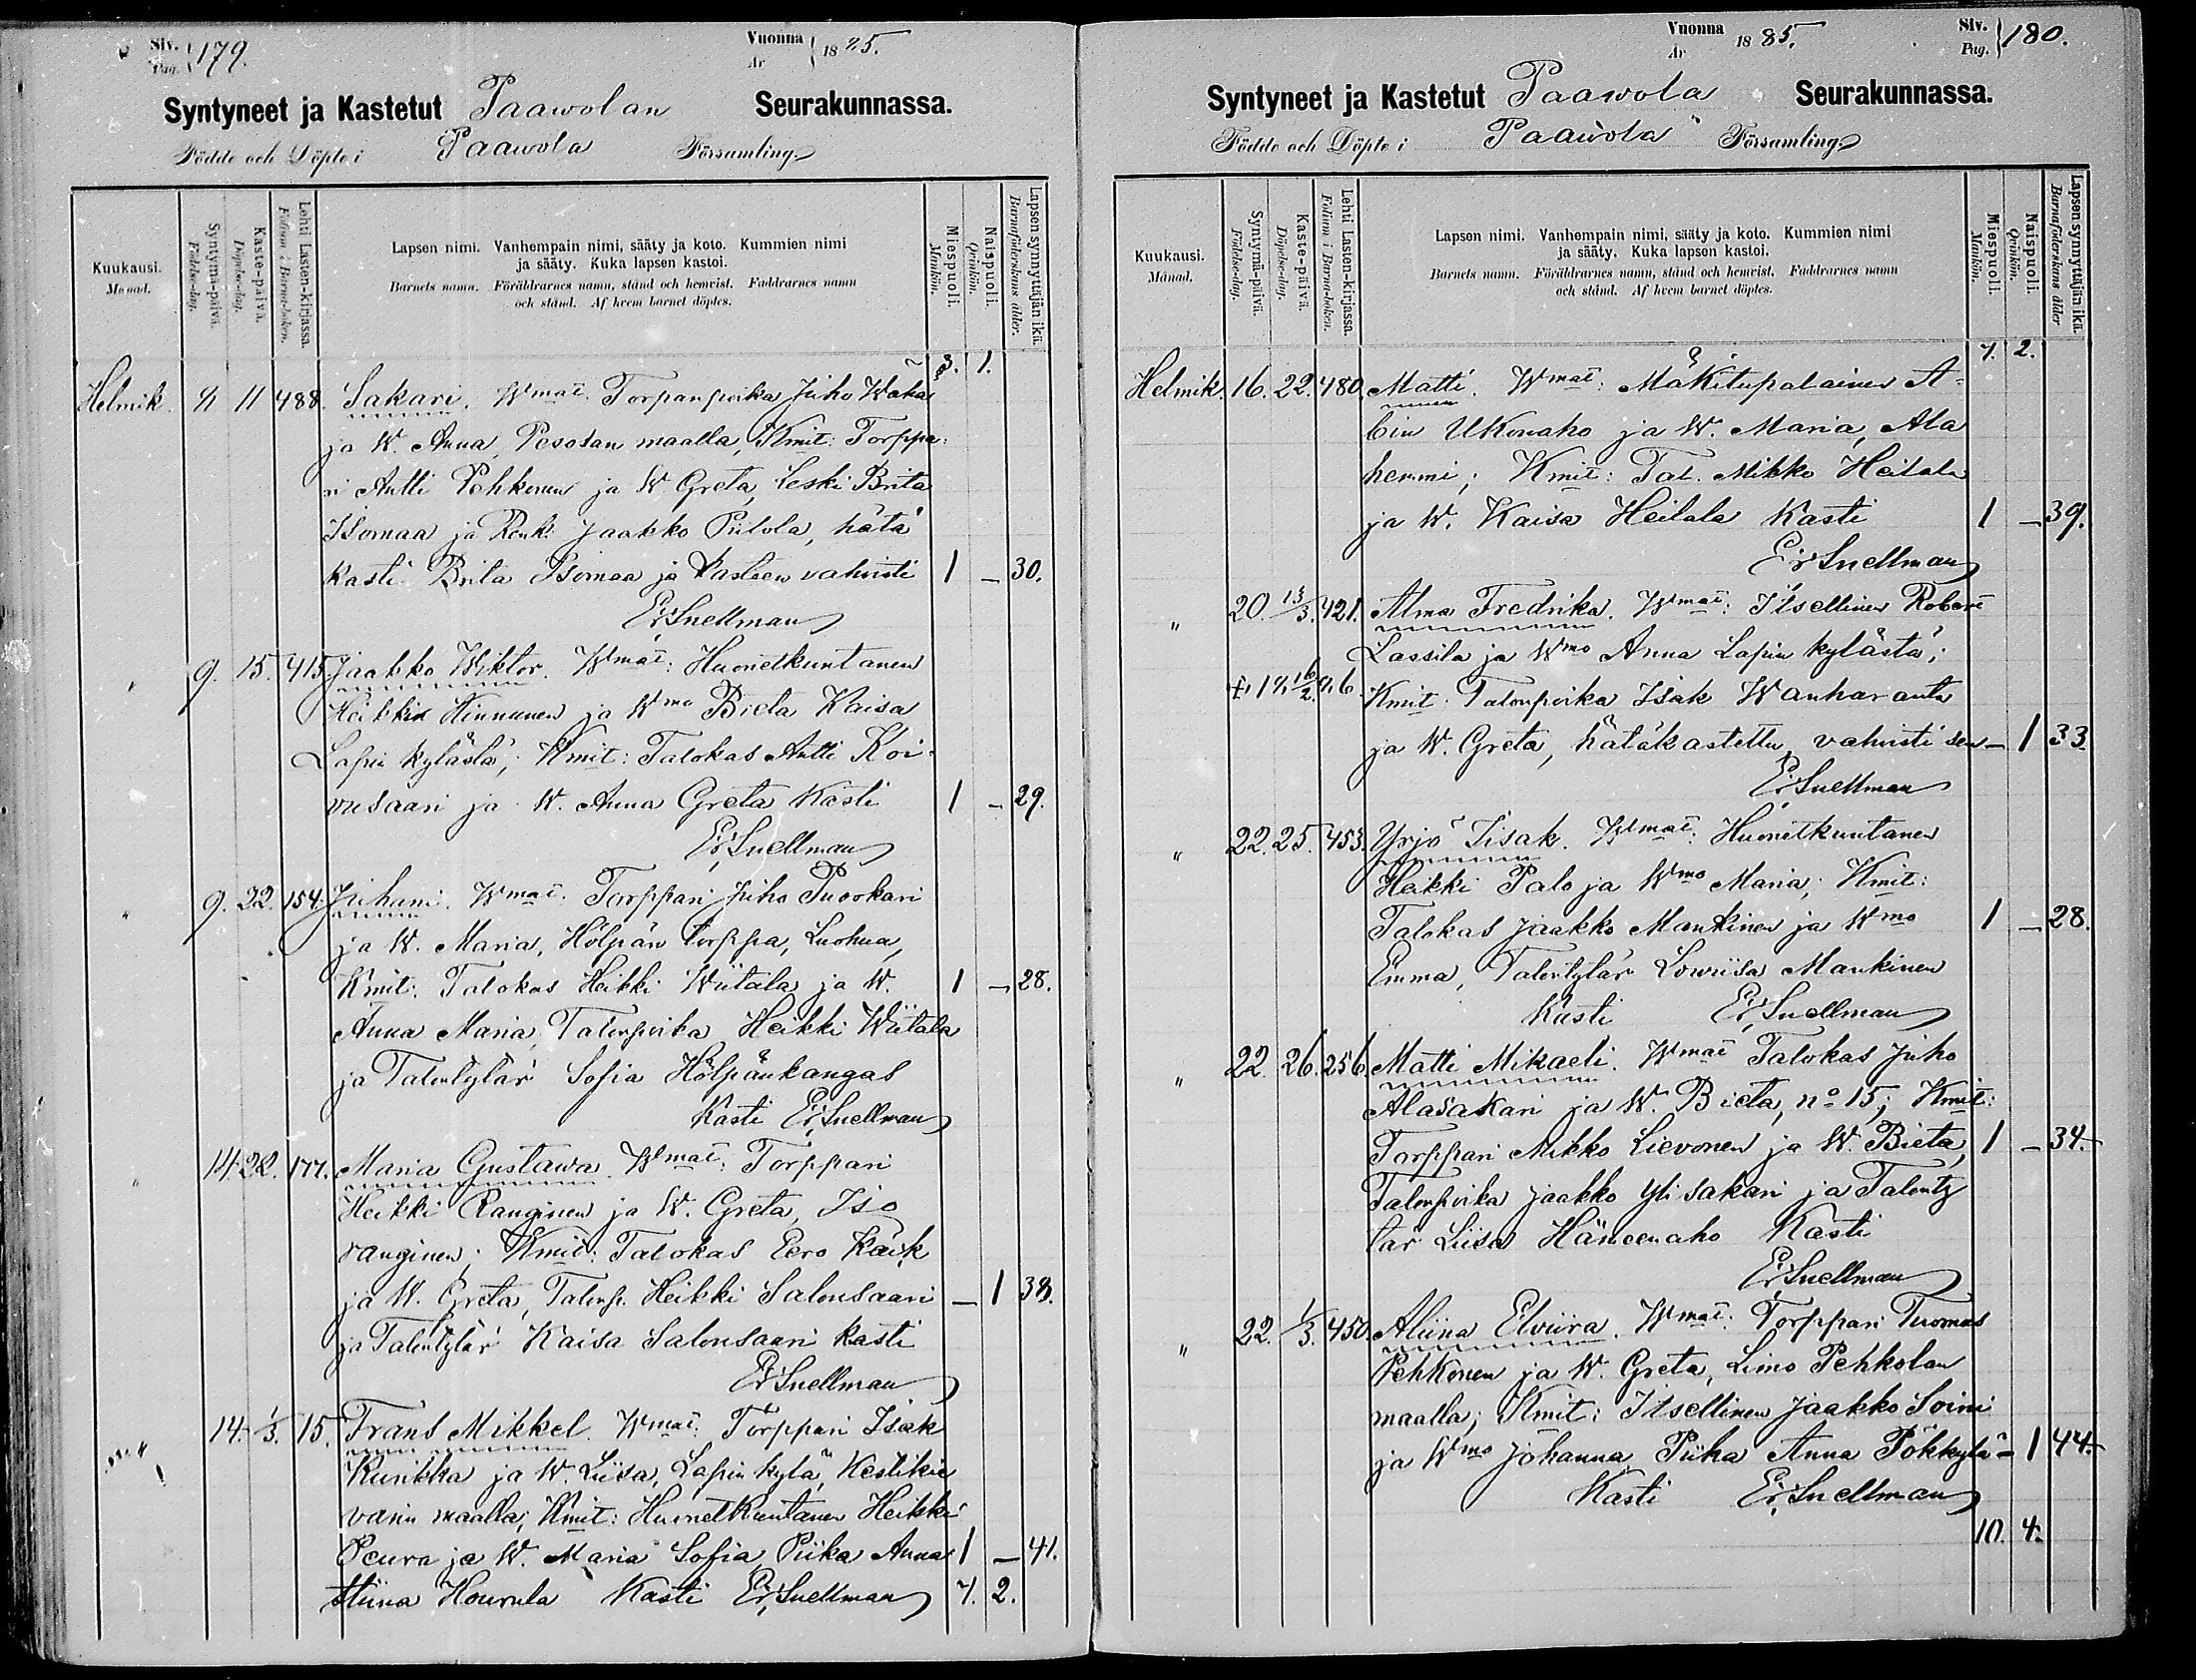 Siv. Pag. 179.
Vuonna År 1885.
Syntyneet ja Kastetut Paawolan Seurakunnassa.
Födde och Döpte i Paawola Församling
Kuukausi. Månad.
Syntymä-päivä. Födelse-dag.
Kaste-päivä. Döpelse-dag.
Lehti Lasten-kirjassa. Folium i Barna-boken.
Lapsen nimi. Vanhempain nimi, sääty ja koto. Kummien nimi
ja sääty. Kuka lapsen kastoi.
Barnets namn. Föräldrarnes namn, stånd och hemvist. Faddrarnes namn
och stånd. Af hvem barnet döptes.
Miespuoli. Mankön.
Naispuoli. Qvinkön.
Lapsen synnyttäjän ikä. Barnaföderskans ålder.
3. 1.
Helmik. 11 488. Sakari. Wmat. Torpanpoika Juho Waha
ja W. Anna, Pesolan maalla, Kmit: Torppa-
ri Antti Pehkonen ja W. Greta, Leski Brita
Isomaa ja Renk. Jaakko Piilola, hätä
kasti Brita Isomaa ja kasteen vahvisti 1 – 30.
Er. Snellman
" 9. 15. 415. Jaakko Wiktor. Wmat: Huonetkuntanen
Heikki Hinnunen ja Wmo Brita Kaisa
Lapin kylästä; Kmit: Talokas Antti Koi-
vusaari ja W. Anna Greta Kasti 1 – 29.
Er. Snellman
" 9. 22. 154. Juhani. Wmat. Torppari Juho Puorkari
ja W. Maria, Hölpän torppa, Luohua,
Kmit: Talokas Heikki Wiitala ja W. 1 – 28.
Anna Maria, Talonpoika Heikki Wiitala
ja Talontytär Sofia Hölpänkangas
Kasti Er. Snellman
" 14. 22. 177. Maria Gustawa. Wmat: Torppari
Heikki Ranginen ja W. Greta, Iso
ranginen; Kmit: Talokas Eero Käik
ja W. Greta, Talonp. Heikki Salonsaari – 1 38.
ja Talontytär Kaisa Salonsaari Kasti
Er. Snellman
" 14. 1/3. 15. Frans Mikkel. Wmat: Torppari Isak
Kurikka ja W. Liisa, Lapin kylä, Kestikie
varin maalla; Kmit: Huonetkuntanen Heikki
Peura ja W. Maria Sofia, Piika Anna 1 – 41.
Stiina Hourula Kasti Er. Snellman 7. 2.
Vuonna År 1885.
Siv. Pag. 180.
Syntyneet ja Kastetut Paawola Seurakunnassa.
Födde och Döpte i Paawola Församling
Kuukausi. Månad.
Syntymä-päivä. Födelse-dag.
Kaste-päivä. Döpelse-dag.
Lehti Lasten-kirjassa. Folium i Barna-boken.
Lapsen nimi. Vanhempain nimi, sääty ja koto. Kummien nimi
ja sääty. Kuka lapsen kastoi.
Barnets namn. Föräldrarnes namn, stånd och hemvist. Faddrarnes namn
och stånd. Af hvem barnet döptes.
Miespuoli. Mankön.
Naispuoli. Qvinkön.
Lapsen synnyttäjän ikä. Barnaföderskans ålder
7. 2.
Helmik. 16. 22. 480. Matti. Wmat: Mäkitupalainen A-
bin Ukonaho ja W. Maria, Ala
hemmi; Kmit: Tal. Mikko Heilala
ja W. Kaisa Heilala Kasti 1 – 39.
Er Snellman
" 20. 13/3. 421. Alma Fredrika. Wmat: Itsellinen Robert
Lassila ja Wmo Anna Lapin kylästä;
Kmit: Talonpoika Isak Wanharanta
ja W. Greta, hätäkastettu, vahvisti sen – 1 33
Er. Snellman
" 22. 25. 453. Yrjö Iisak. Wmat: Huonetkuntanen
Heikki Palo ja Wmo Maria; Kmit:
Talokas Jaakko Mankinen ja Wmo 1 – 28.
Emma, Talontytär Lowiisa Mankinen
Kasti Er. Snellman
" 22. 26. 256. Matti Mikaeli. Wmat Talokas Juho
Alasakari ja W. Brita, no 15; Kmit:
Torppari Mikko Lievonen ja W. Brita, 1 – 34.
Talonpoika Jaakko Ylisakari ja Talonty
tär Liisa Hämeenaho Kasti
Er. Snellman
" 22. 1/3. 450. Aliina Elviira. Wmat: Torppari Tuomas
Pehkonen ja W. Greta, Limo Pehkolan
maalla; Kmit: Itsellinen Jaakko Soini
ja Wmo Johanna, Piika Anna Pökkylä – 1 44.
Kasti Er. Snellman
10. 4.